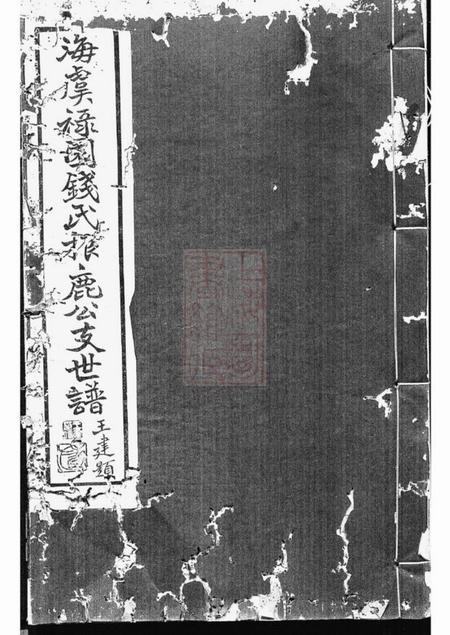 海虞祿園錢氏振鹿公支世譜
王建題